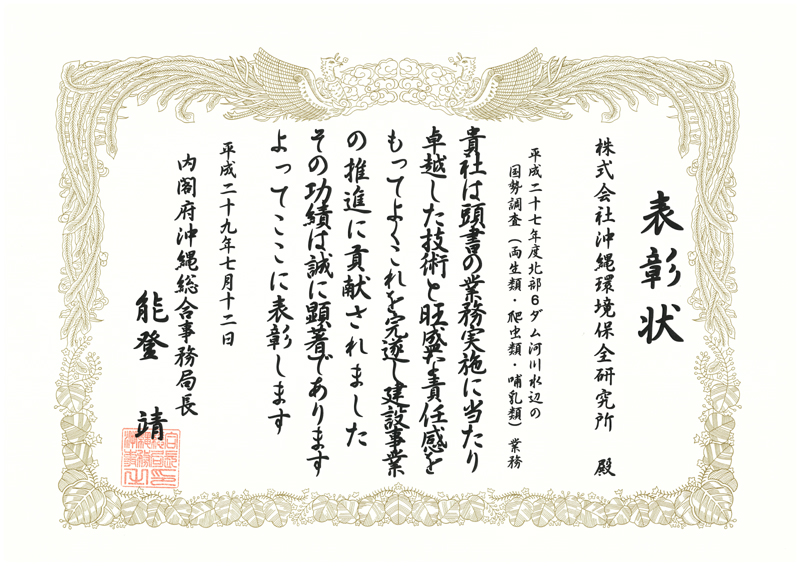 表彰状
株式会社沖縄環境保全研究所 殿
平成二十七年度北部6ダム河川水辺の
国勢調査(両生類・爬虫類・哺乳類)業務
貴社は頭書の業務実施に当たり
卓越した技術と旺盛な責任感を
もってよくこれを完遂し建設事業
の推進に貢献されました
その功績は誠に顕著であります
よってここに表彰します
平成二十九年七月十二日
内閣府沖縄総合事務局長
能登 靖